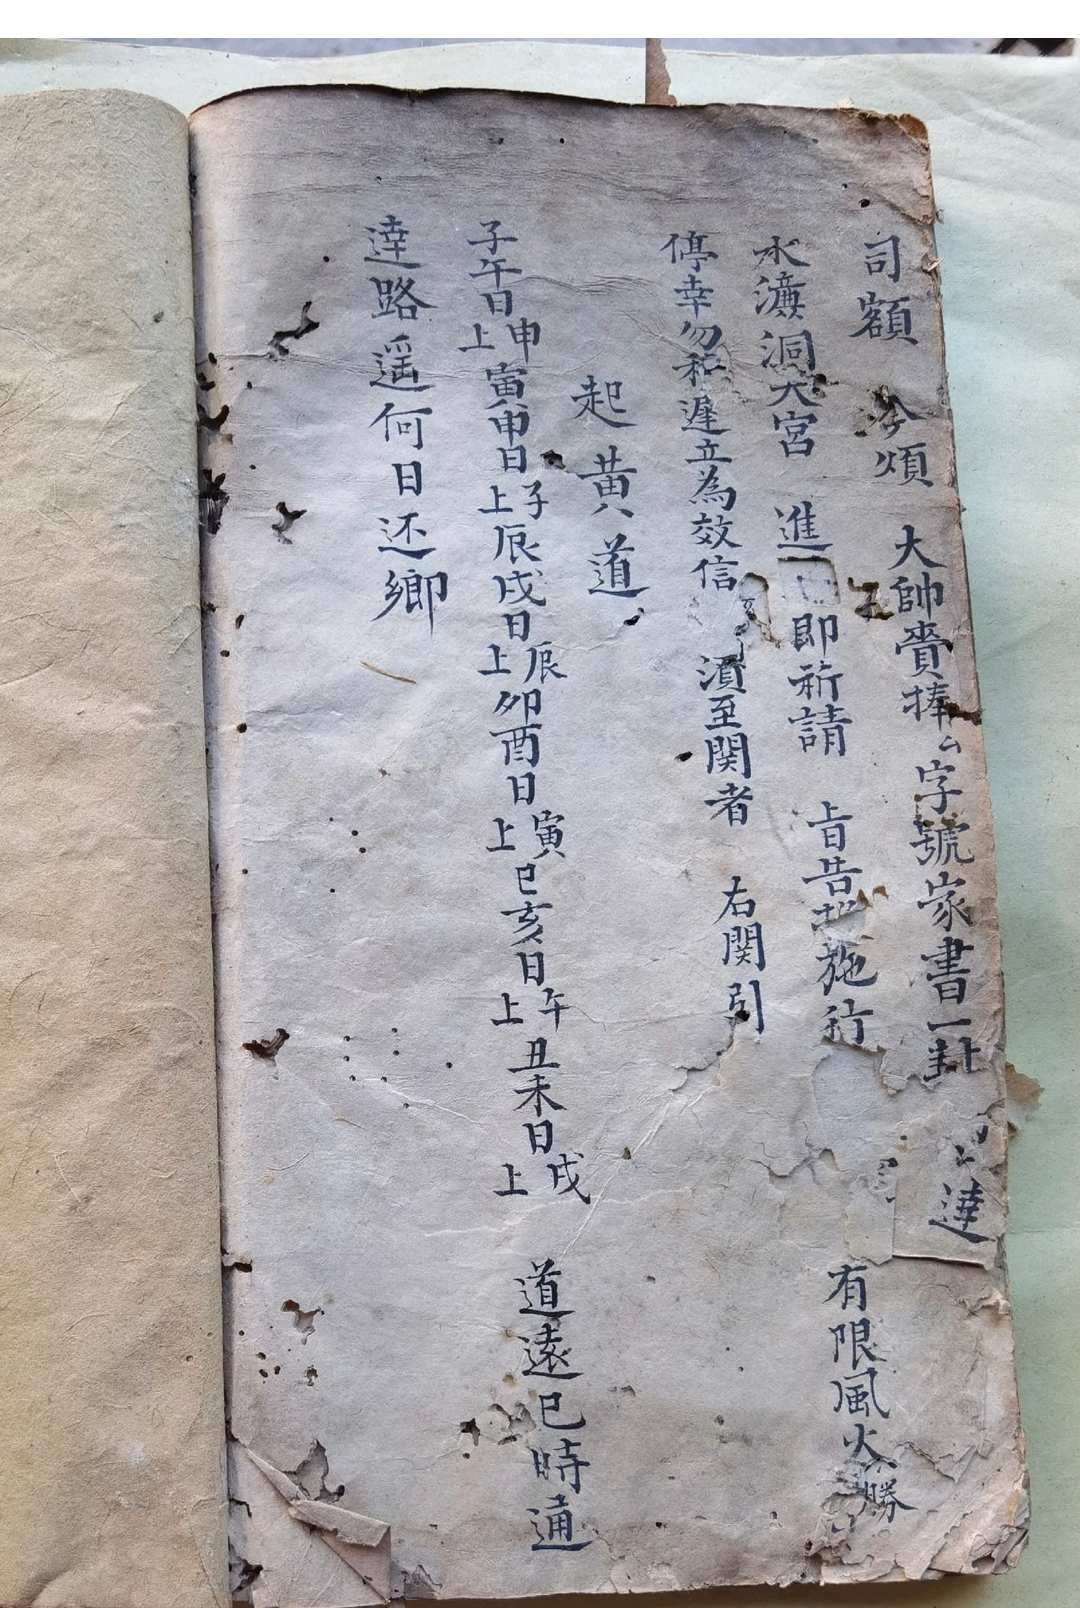 司額 今煩 大帥賷捧厶字號家書一封 達
水瀇洞大宮 進 即祈請 旨告 施行 有限風火 勝
停幸勿稽遲立為效信 須至関者 右関引
起黄道
子午日上申寅申日上子辰戌日上辰卯酉日上寅巳亥日上午丑未日上戌 道遠巳時通
達路遥何日还鄉